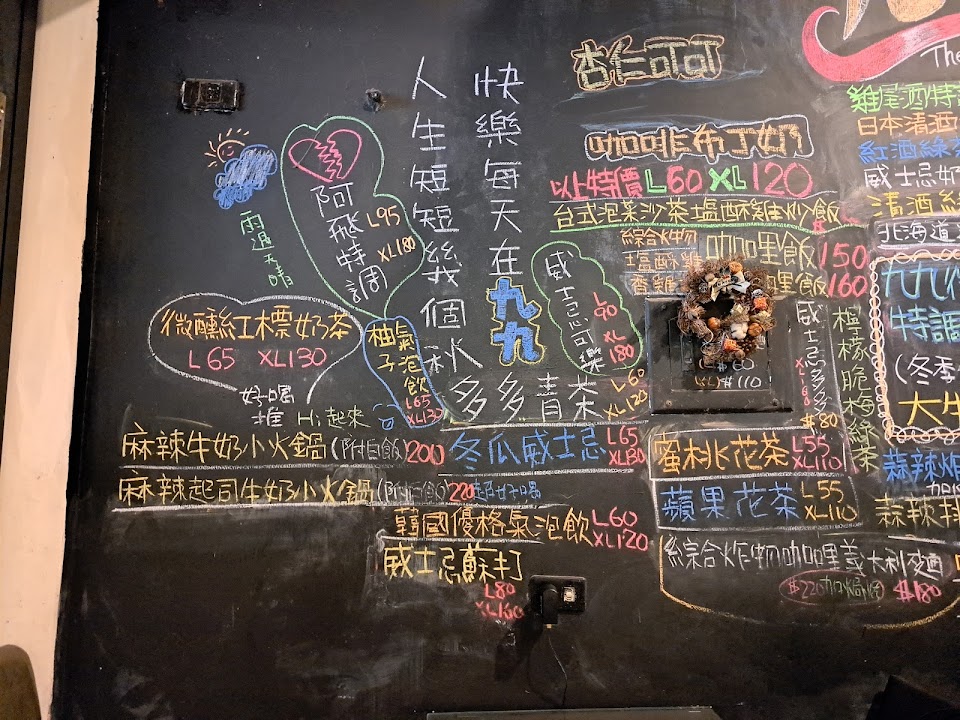 人生短短幾個秋
快樂每天在九九
雨過天晴
阿飛特調
L95
XL180
微醺紅標奶茶
L65 XL130
好喝
推 Hi起來
柚子氣泡飲
L65
XL130
威士忌可樂
L90
XL180
多多青茶
L60
XL120
麻辣牛奶小火鍋(附白飯)200
麻辣起司牛奶小火鍋(附白飯)220
冬瓜威士忌
L65
XL130
韓國優格氣泡飲
L60
XL120
威士忌蘇打
L80
XL160
杏仁可可
咖啡布丁奶
以上特價L60 XL120
台式泡菜沙茶塩酥雞炒飯
綜合炸物咖哩飯 150
塩酥雞
香雞
哩飯 160
L$60
XL$110
威士忌多多
$80
檸檬脆梅綠茶
蜜桃花茶
L55
XL110
蘋果花茶
L55
XL110
綜合炸物咖哩義大利麵
$180
The
雞尾酒特
日本清酒
紅酒綠
威士忌奶
清酒
北海道
九九
特調
(冬季
大
蒜辣
蒜辣